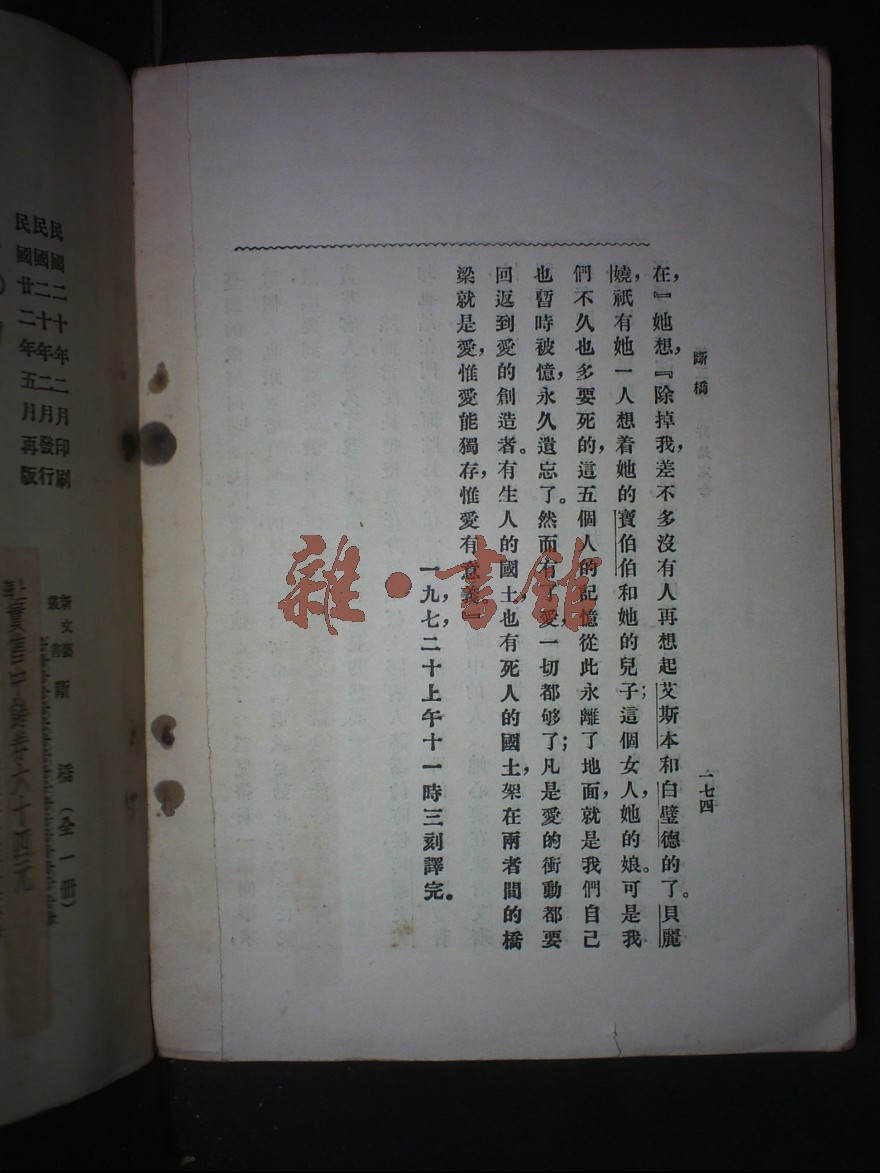 斷橋
一七四
在，』她想，『除掉我，差不多沒有人再想起艾斯本和白璧德的了。貝麗
嬈，祇有她一人想着她的寶伯伯和她的兒子；這個女人，她的娘。可是我
們不久也多要死的，這五個人的記憶從此永離了地面，就是我們自己
也暫時被憶，永久遺忘了。然而有了愛，一切都够了；凡是愛的衝動都要
回返到愛的創造者。有生人的國土，也有死人的國土，架在兩者間的橋
梁就是愛，惟愛能獨存，惟愛有意義』
一九，七，二十上午十一時三刻譯完。
雜·書館
民國二十年二月印刷
民國二十年二月發行
民國廿二年五月再版
新文藝
叢書
斷橋（全一册）